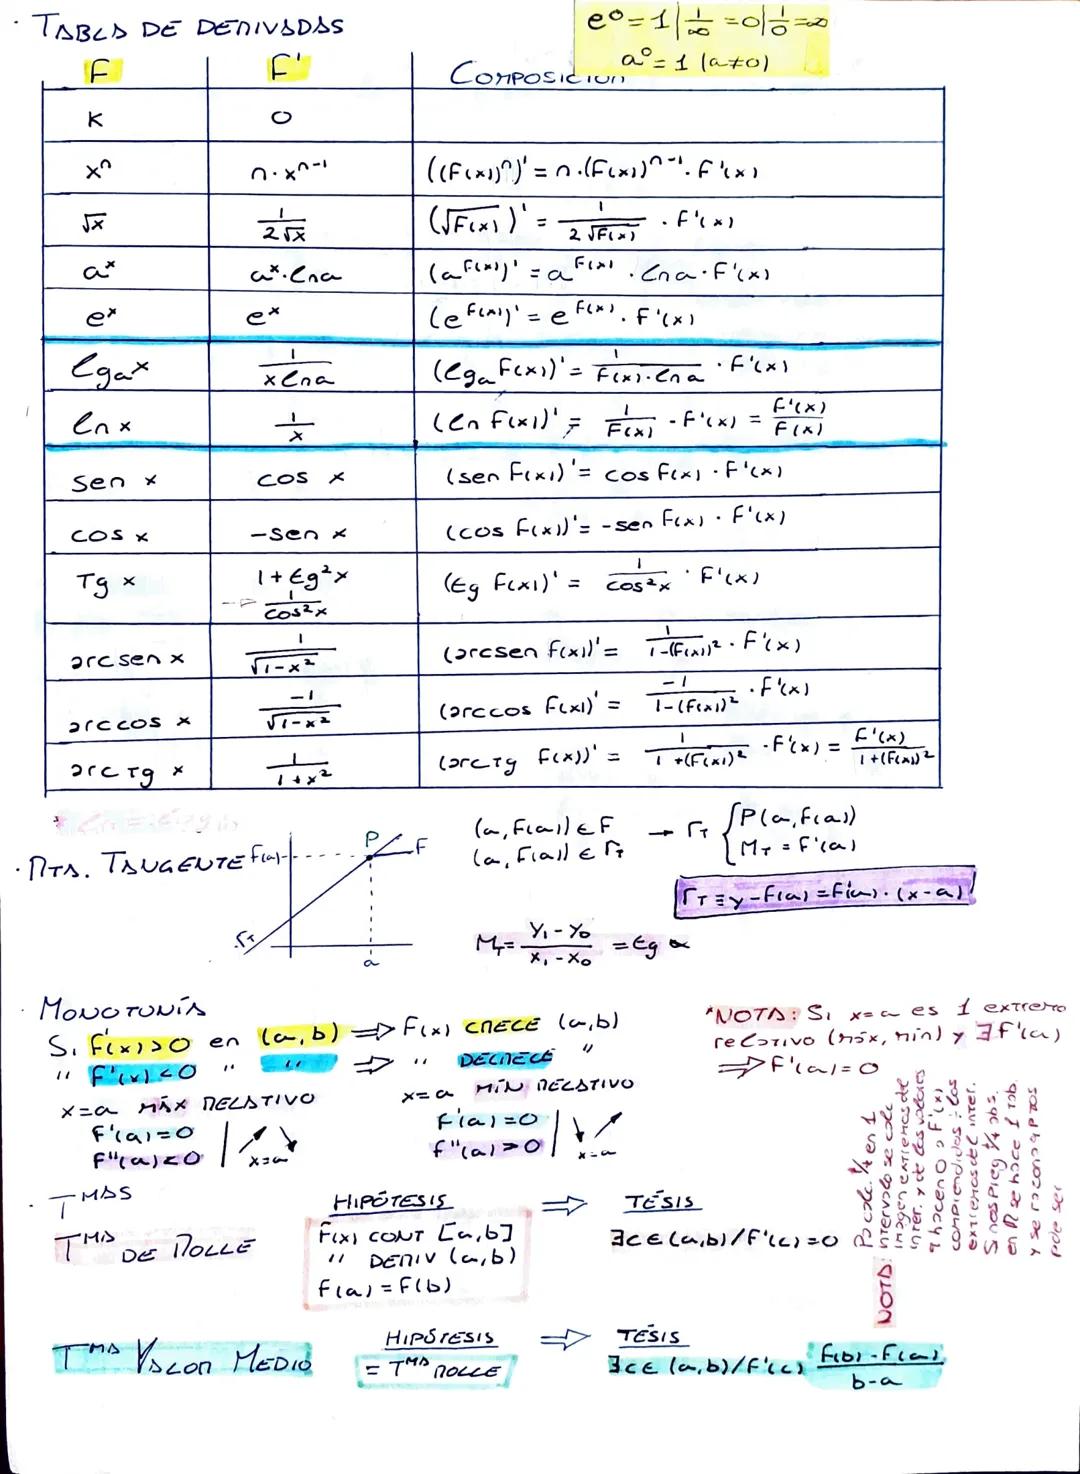 · TABLA DE DERIVADAS
e⁰ = 1 | 1/∞ = 0 | 1/0 = ∞
a⁰ = 1 (a≠0)
F F' COMPOSICIÓN
K 0
xⁿ n·xⁿ⁻¹ ((F(x))ⁿ)' = n·(F(x))ⁿ⁻¹·F'(x)
√x 1/(2√x) (√F(x))' = 1/(2√F(x)) · F'(x)
aˣ aˣ·lna (a^F(x))' = a^F(x) · lna·F'(x)
eˣ eˣ (e^F(x))' = e^F(x) · F'(x)
lgₐx 1/(x lna) (lgₐ F(x))' = 1/(F(x)·lna) · F'(x)
ln x 1/x (ln F(x))' = 1/F(x) · F'(x) = F'(x)/F(x)
sen x cos x (sen F(x))' = cos F(x) · F'(x)
cos x -sen x (cos F(x))' = -sen F(x) · F'(x)
Tg x 1+tg²x (tg F(x))' = 1/cos²x · F'(x)
1/cos²x
arcsen x 1/√(1-x²) (arcsen F(x))' = 1/(1-(F(x))²) · F'(x)
arccos x -1/√(1-x²) (arccos F(x))' = -1/(1-(F(x))²) · F'(x)
arcTg x 1/(1+x²) (arcTg F(x))' = 1/(1+(F(x))²) · F'(x) = F'(x)/(1+(F(x))²)
· RTA. TANGENTE
F(a) P F
rT
a
(a, F(a)) ∈ F → rT { P(a, F(a))
(a, F(a)) ∈ rT MT = F'(a)
rT ≡ y-F(a) = F'(a)·(x-a)
MT = (y₁-y₀)/(x₁-x₀) = tg α
· MONOTONÍA
Si F'(x)>0 en (a,b) ⇒ F(x) CRECE (a,b)
" F'(x)<0 " " ⇒ " DECRECE "
x=a MÁX RELATIVO
F'(a)=0
F''(a)<0
x=a
x=a MÍN RELATIVO
F'(a)=0
F''(a)>0
x=a
*NOTA: Si x=a es 1 extremo
relativo (máx, mín) y ∃F'(a)
⇒ F'(a)=0
· TMAS
TMA DE ROLLE
HIPÓTESIS ⇒ TÉSIS
F(x) CONT [a,b]
" DERIV (a,b)
F(a) = F(b)
∃c∈(a,b)/F'(c)=0
NOTA: Pa calc. ¼ en 1
intervalo se calc
imagen extremos de
inter. y de los valores
q hacen 0 a F'(x)
comprendidos: los
extremos del inter.
Si nos preg ¼ abs.
en R se hace 1 tab.
y se razona q ptos
pide ser
TMA VALOR MEDIO
HIPÓTESIS ⇒ TÉSIS
= TMA ROLLE
∃c∈(a,b)/F'(c) (F(b)-F(a))/(b-a)